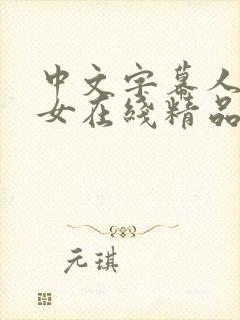 中文字幕人
女在线精品
元琪